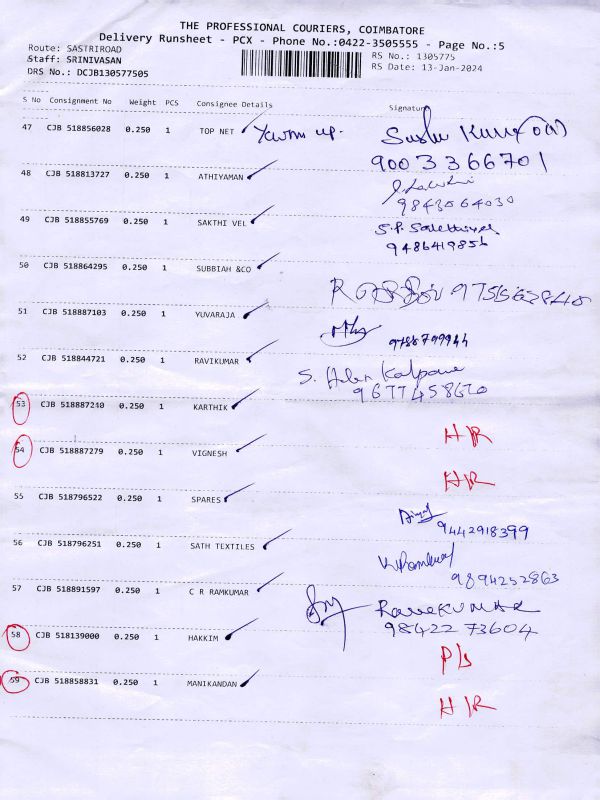 THE PROFESSIONAL COURIERS, COIMBATORE
Delivery Runsheet - PCX - Phone No.:0422-3505555 - Page No.:5
Route: SASTRIROAD RS No.: 1305775
Staff: SRINIVASAN RS Date: 13-Jan-2024
DRS No.: DCJB130577505
S No Consignment No Weight PCS Consignee Details Signature
47 CJB 518856028 0.250 1 TOP NET
9003366701
48 CJB 518813727 0.250 1 ATHIYAMAN
9843064030
49 CJB 518855769 0.250 1 SAKTHI VEL
9486419856
50 CJB 518864295 0.250 1 SUBBIAH &CO
51 CJB 518887103 0.250 1 YUVARAJA
52 CJB 518844721 0.250 1 RAVIKUMAR
S. Helen Kalpana
9677458670
53 CJB 518887210 0.250 1 KARTHIK
H/R
54 CJB 518887279 0.250 1 VIGNESH
H/R
55 CJB 518796522 0.250 1 SPARES
9442918399
56 CJB 518796251 0.250 1 SATH TEXTILES
9894252863
57 CJB 518891597 0.250 1 C R RAMKUMAR
98422 73604
58 CJB 518139000 0.250 1 HAKKIM
P/s
59 CJB 518858831 0.250 1 MANIKANDAN
H/R